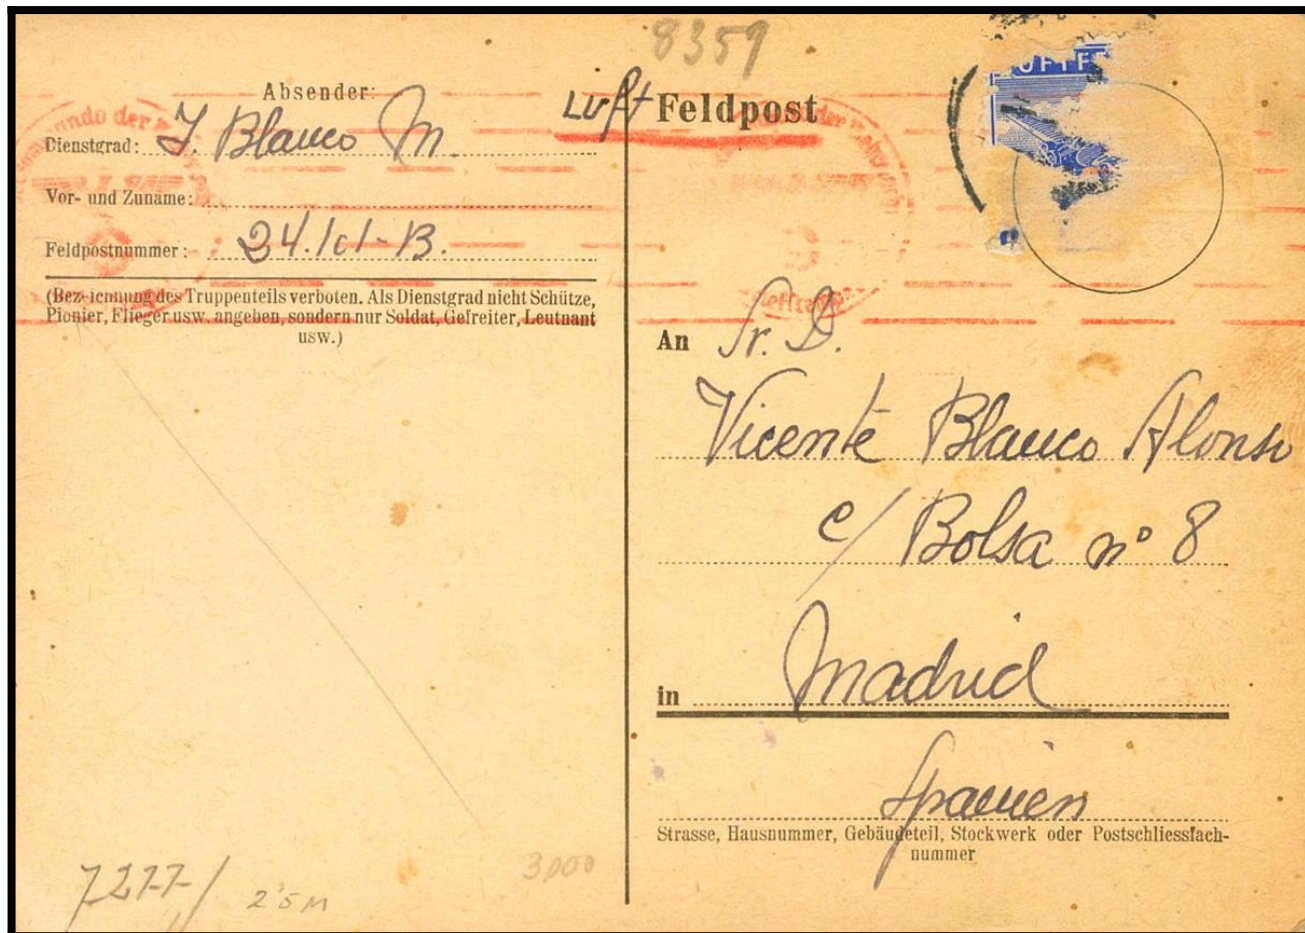 8359
Absender:
Dienstgrad: J. Blanco M.
Vor- und Zuname:
Feldpostnummer: 24.101-B.
(Bezeichnung des Truppenteils verboten. Als Dienstgrad nicht Schütze,
Pionier, Flieger usw. angeben, sondern nur Soldat, Gefreiter, Leutnant
usw.)
Luft Feldpost
An Sr. D.
Vicente Blanco Alonso
c/ Bolsa nº 8
in Madrid
Spanien
Strasse, Hausnummer, Gebäudeteil, Stockwerk oder Postschliessfach-
nummer
7277/
2'5M
3000